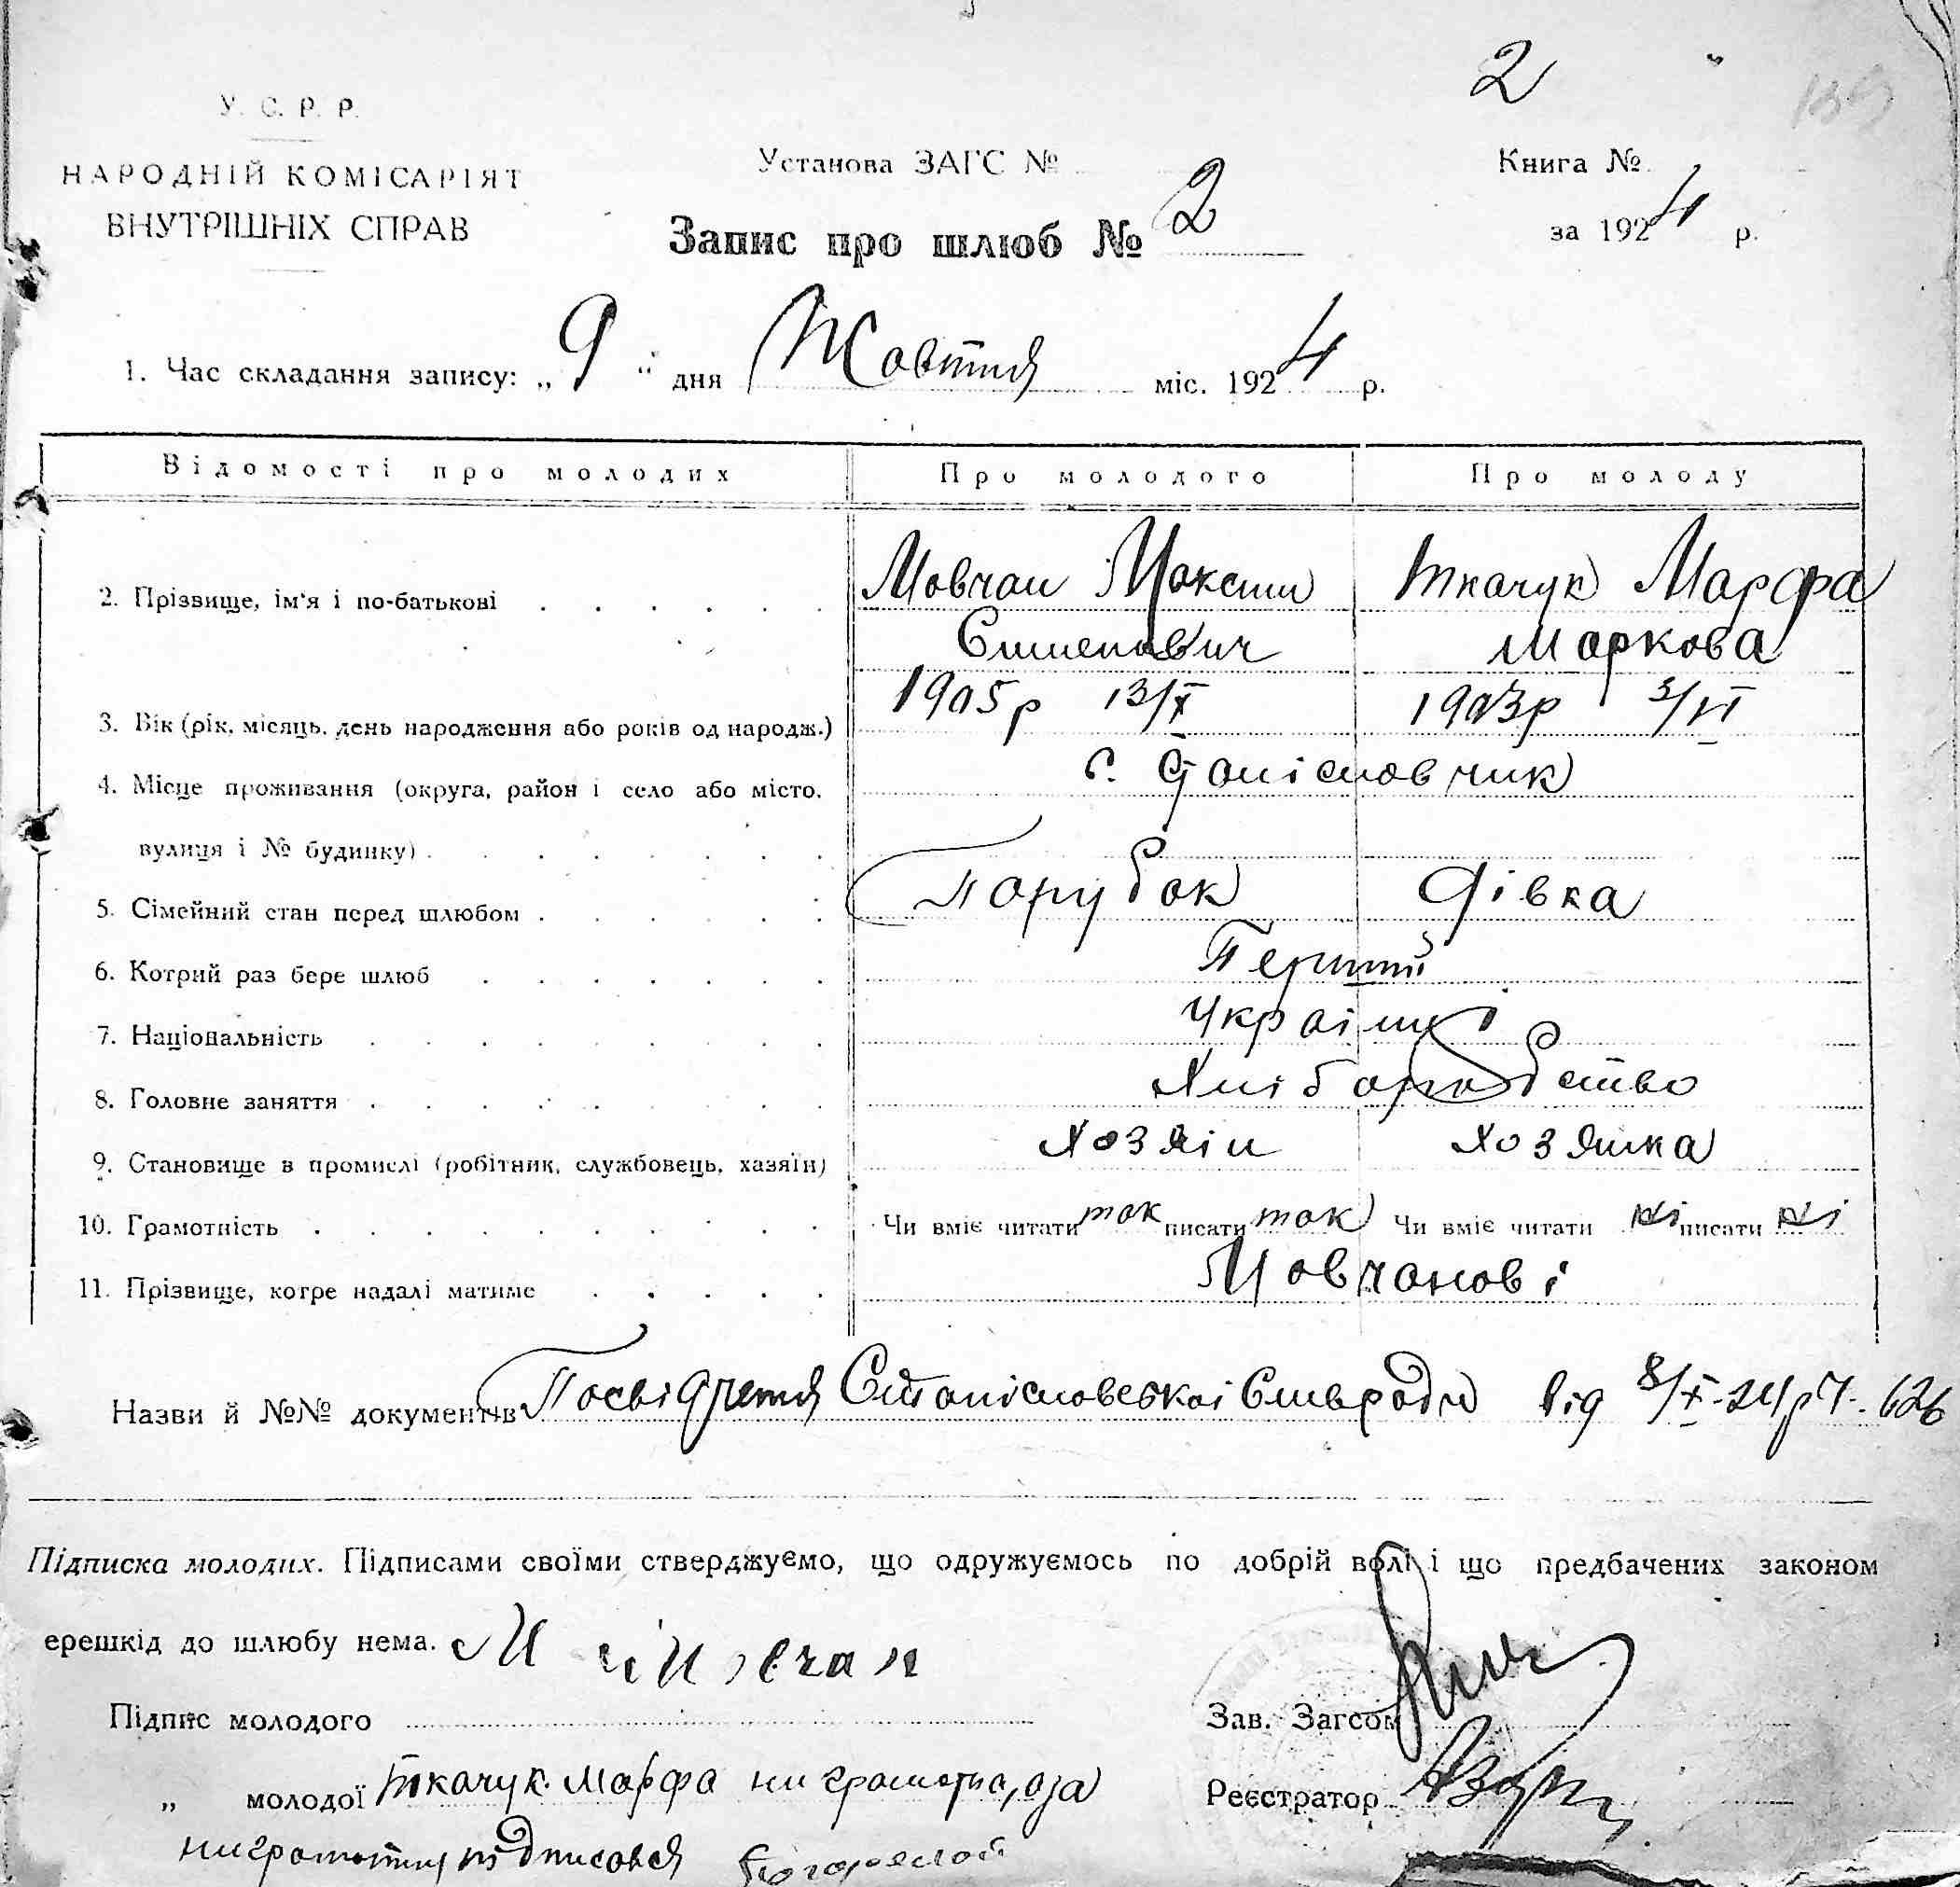 2
У. С. Р. Р.
НАРОДНІЙ КОМІСАРІЯТ
ВНУТРІШНІХ СПРАВ
Установа ЗАГС №
Книга №
Запис про шлюб № 2
за 1924 р.
1. Час складання запису: „9“ дня Жовтня міс. 1924 р.
Відомості про молодих Про молодого Про молоду
2. Прізвище, ім'я і по-батькові Мовчан Максим Ткачук Марфа
Маркова
3. Вік (рік, місяць, день народження або років од народж.) 1905р 13/X 1903р 3/VI
4. Місце проживання (округа, район і село або місто, с. Станіславчик
вулиця і № будинку)
5. Сімейний стан перед шлюбом Парубок Дівка
6. Котрий раз бере шлюб Перший
7. Національність Українці
8. Головне заняття Хліборобство
9. Становище в промислі (робітник, службовець, хазяїн) Хозяін Хозяйка
10. Грамотність Чи вміє читати так писати так Чи вміє читати ні писати ні
11. Прізвище, котре надалі матиме Мовчанові
Назви й №№ документів Посвідчення Станіславської Сільради від 8/X-24р Ч. 626
Підписка молодих. Підписами своїми стверджуємо, що одружуємось по добрій волі і що предбачених законом
ерешкід до шлюбу нема. М Мовчан
Підпис молодого
Зав. Загсом
„ молодої Ткачук Марфа ниграмотна, аза
Реєстратор
ниграмотну підписався